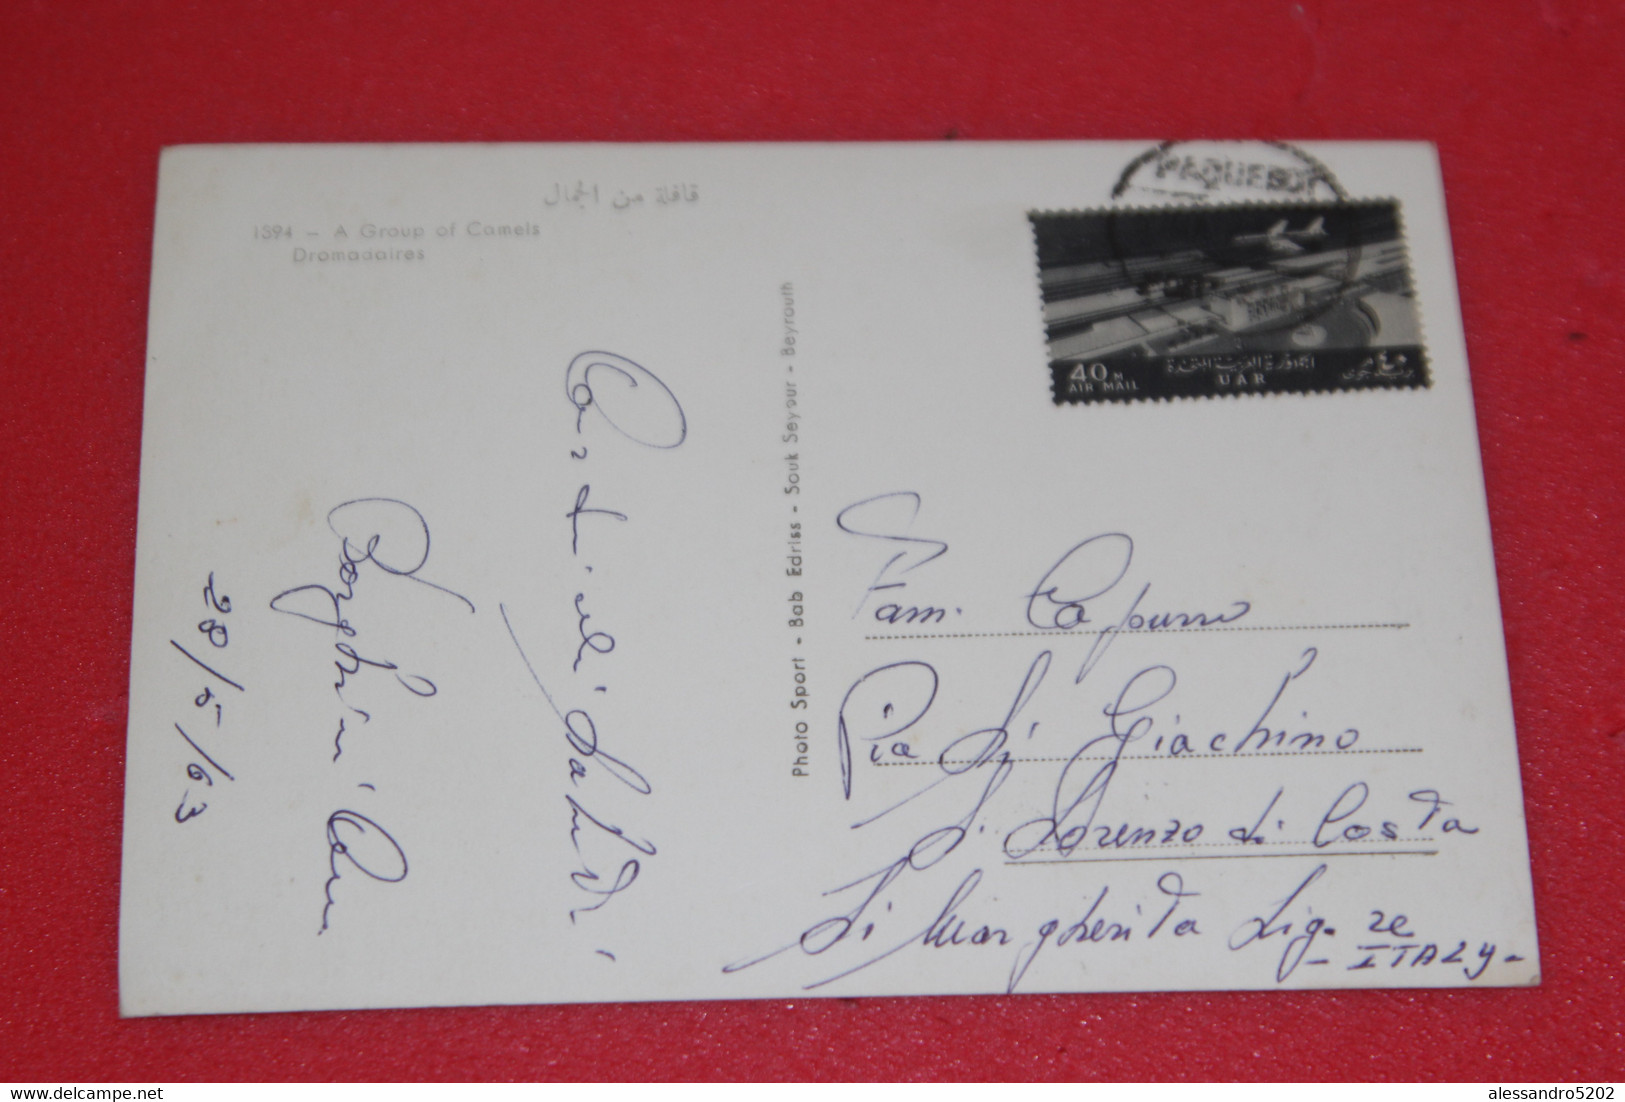 قافلة من الجمال
1394 - A Group of Camels
Dromadaires
Photo Sport - Bab Edriss - Souk Seyour - Beyrouth
PAQUEBOT
40 M
AIR MAIL
الجمهورية العربية المتحدة
UAR
٤٠
بريد جوى
Cordiali Saluti
28/5/63
Fam. Capurro
Via Si Giachino
S. Lorenzo di Costa
Si Margherita Lig. re
- ITALY -
delcampe.net
alessandro5202